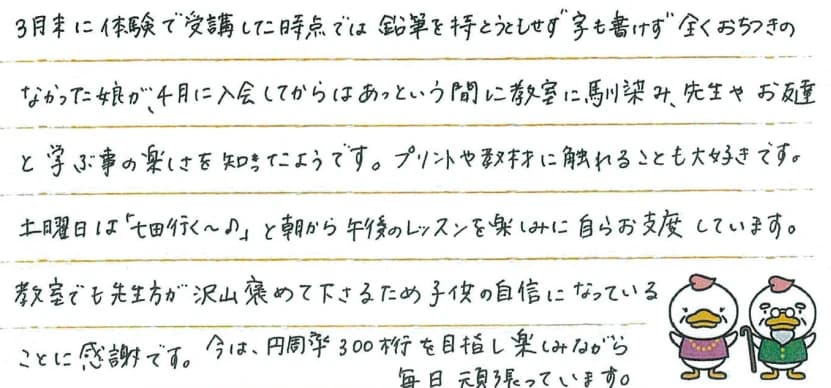 3月末に体験で受講した時点では鉛筆を持とうともせず字も書けず全くおちつきの
なかった娘が、4月に入会してからはあっという間に教室に馴染み、先生やお友達
と学ぶ事の楽しさを知ったようです。プリントや教材に触れることも大好きです。
土曜日は「七田行く〜♪」と朝から午後のレッスンを楽しみに自らお支度しています。
教室でも先生方が沢山褒めて下さるため子供の自信になっている
ことに感謝です。今は、円周率300桁を目指し楽しみながら
毎日頑張っています。